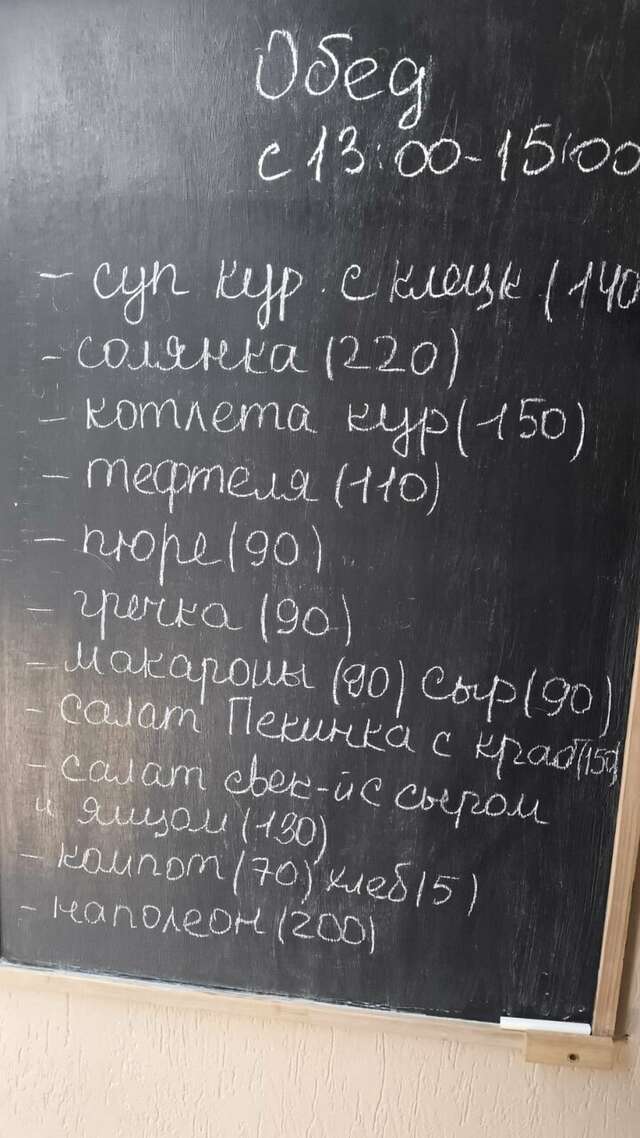 Обед
с 13:00-15:00
- суп кур. с клецк (140
- солянка (220)
- котлета кур (150)
- тефтеля (110)
- пюре (90)
- гречка (90)
- макароны (90) сыр (90)
- салат Пекинка с краб (150)
- салат свек-й с сыром
и яйцом (130)
- компот (70) хлеб (5)
- наполеон (200)